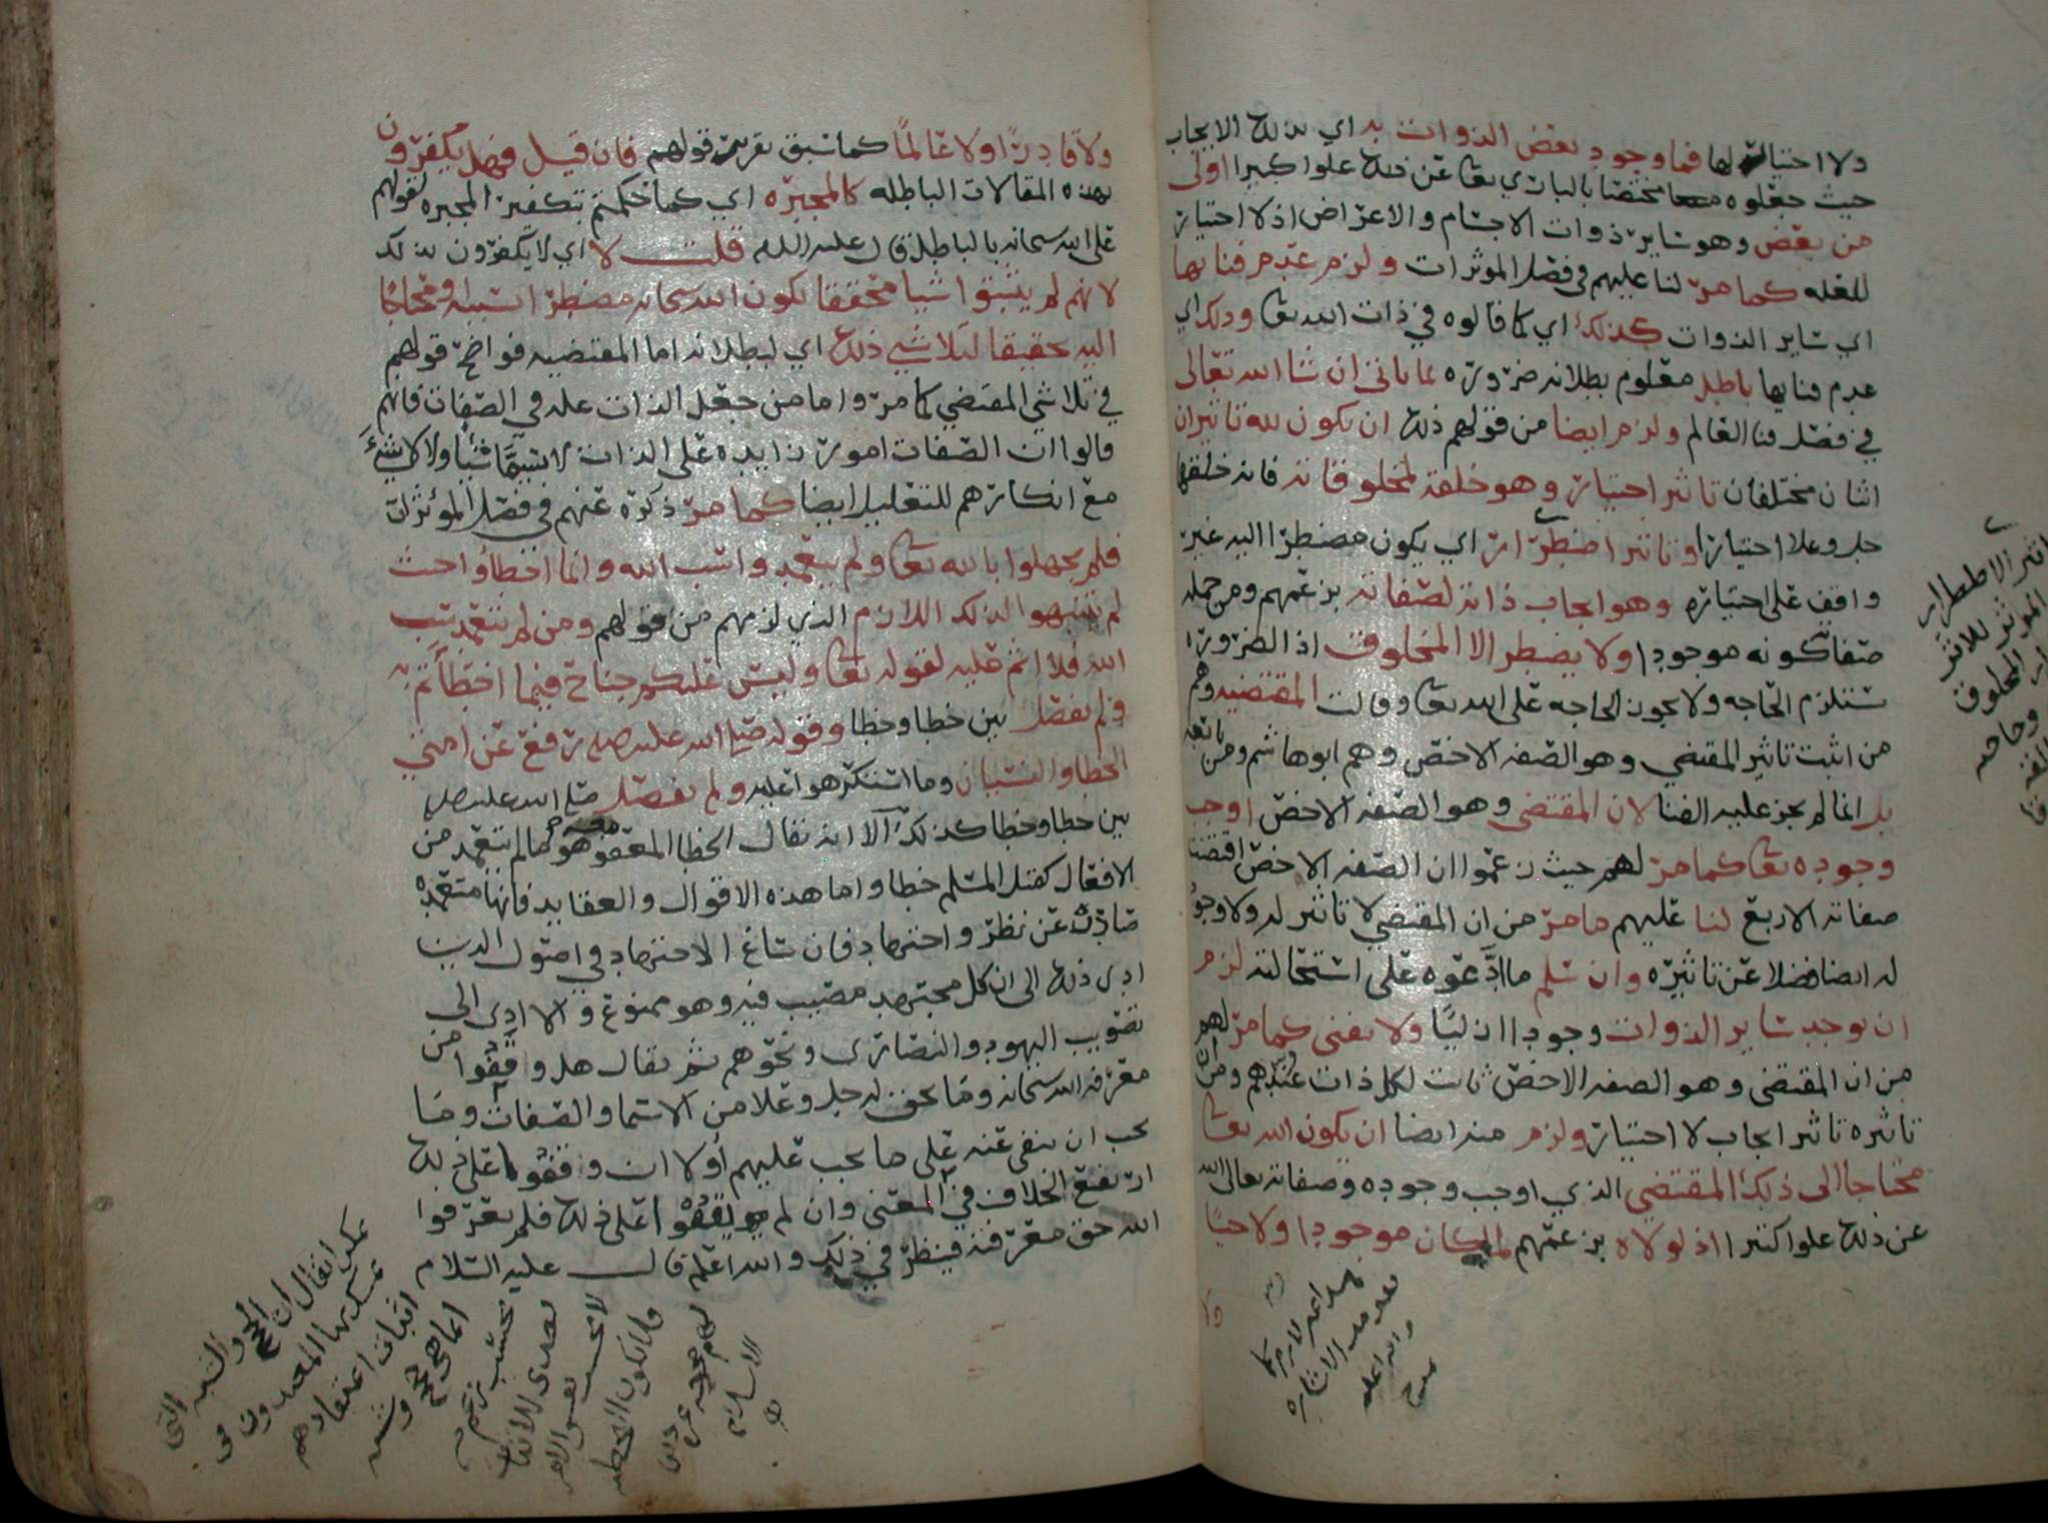 ولا احتيار لها فما وجود بعض الذوات به اي بذلك الايجاب
حيث جعلوه مختصا بالباري تعا عن ذلك علوا كبيرا اولى
من بعض وهو ساير ذوات الاجسام والاعراض اذ لا احتيار
للعله كما مرّ لنا عليهم في فصل الموثرات ولزم عدم فنايها
اي ساير الذوات كذلك اي كما قالوه في ذات الله تعا وذلك اي
عدم فنايها باطل معلوم بطلانه ضروره لما ياتي ان شا الله تعالى
في فصل فنا العالم ولزم ايضا من قولهم ذلك ان يكون لله تاثيران
اثنان مختلفان تاثير احتيار وهو خلقه لمخلوقاته فانه خلقها
جل وعلا احتيارا وتاثير اضطرار اي يكون مضطرا اليه غير
واقف على احتياره وهو ايجاب ذاته لصفاته بزعمهم ومن جمله
صفاته كونه موجودا ولا يضطر الا المخلوق اذ الضروره
تستلزم الحاجه ولا يجوز الحاجه على الله تعا وقالت المقتضيه وهم
من اثبت تاثير المقتضي وهو الصفه الاخص وهم ابو هاشم ومن تابعه
بل انما لم يجز عليه الفنا لان المقتضي وهو الصفه الاخص اوجب
وجوده تعا كما مرّ لهم حيث زعموا ان الصفه الاخص اقتضت
صفاته الاربع لنا عليهم ما مرّ من ان المقتضي لا تاثير له ولا وجود
له ايضا فضلا عن تاثيره وان سلم ما ادَّعوه على استحالته لزم
ان يوجد ساير الذوات وجودا ازليًا ولا يفنى كما مرّ لهم
من ان المقتضي وهو الصفه الاخص ثابت لكل ذات عندهم ومن ان
تاثيره تاثير ايجاب لا احتيار ولزم منه ايضا ان يكون الله تعا
محتاجا الى ذلك المقتضي الذي اوجب وجوده وصفاته تعالى الله
عن ذلك علوا كبيرا اذ لولاه بزعمهم لما كان موجودا ولا حيًا
ولا
ولا قادرًا ولا عالمًا كما سبق تقرير قولهم فان قيل فهل يكفرون
بهذه المقالات الباطله كالمجبره اي كما حكمتم بتكفير المجبره لقولهم
على الله سبحانه بالباطل قال عليه السلام قلت لا اي لا يكفرون بذلك
لانهم لم يثبتوا شيا محققا يكون الله سبحانه مضطرا بسببه ومحتاجًا
اليه تحقيقا لتلاشي ذلك اي لبطلانه اما المقتضيه فواضح قولهم
في تلاشي المقتضي كما مرّ واما من جعل الذات عله في الصفات فانهم
قالوا ان الصفات امور زايده على الذات لا نسميها شيًا ولا لا شيءَ
مع انكارهم للتعليل ايضا كما مرّ ذكره عنهم في فصل المؤثرات
فلم يجهلوا بالله تعا ولم يتعمدوا سب الله وانما اخطاوا حيث
لم يتنبهوا لذلك اللازم الذي لزمهم من قولهم ومن لم يتعمد سب
الله فلا اثم عليه لقوله تعا وليس عليكم جناح فيما اخطأتم به
ولم يفصل بين خطا وخطا وقوله صلى الله عليه رفع عن امتي
الخطا والنسيان وما استكرهوا عليه ولم يفصل صلى الله عليه
بين خطا وخطا كذلك الا انه يقال الخطا المعفو هو ما لم يتعمد من
الافعال كقتل المسلم خطا واما هذه الاقوال والعقايد فانها متعمده
صادره عن نظر واجتهاد فان ساغ الاجتهاد في اصول الدين
ادى ذلك الى ان كل مجتهد مصيب فيه وهو ممنوع والا ادى الى
تصويب اليهود والنصارى ونحوهم ثم يقال هل وافقوا من
معرفه الله سبحانه وما يحق له جل وعلا من الاسما والصفات وما
يجب ان ينفى عنه على ما يجب عليهم أولا ان وافقوا على ذلك
ارتفع الخلاف في المعنى وان لم يوافقوا على ذلك فلم يعرفوا
الله حق معرفته فينظر في ذلك والله اعلم قال عليه السلام